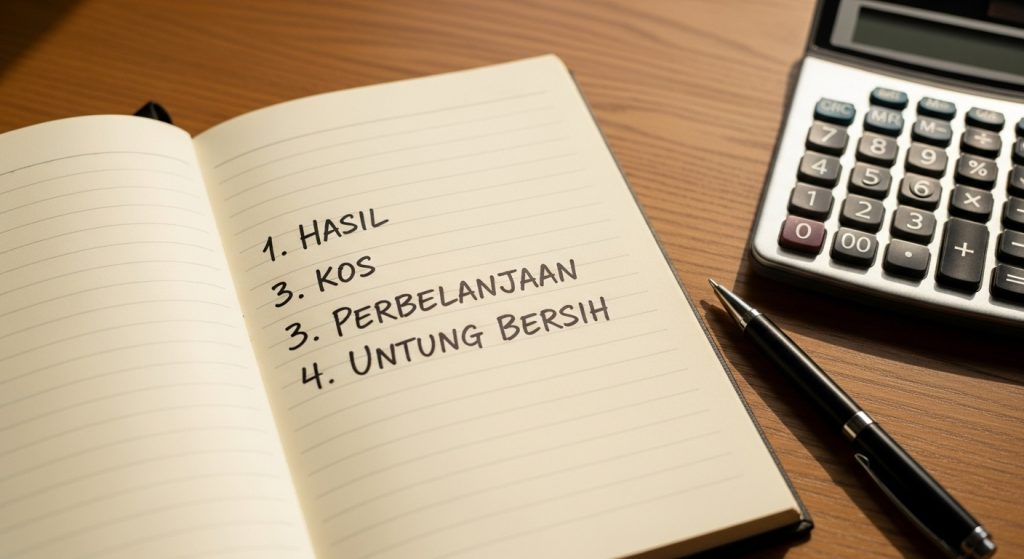 1. HASIL
3. KOS
3. PERBELANJAAN
4. UNTUNG BERSIH
MR M-
7 8 9 %
4 5 6 ×
1 2 3 +
0 00 .